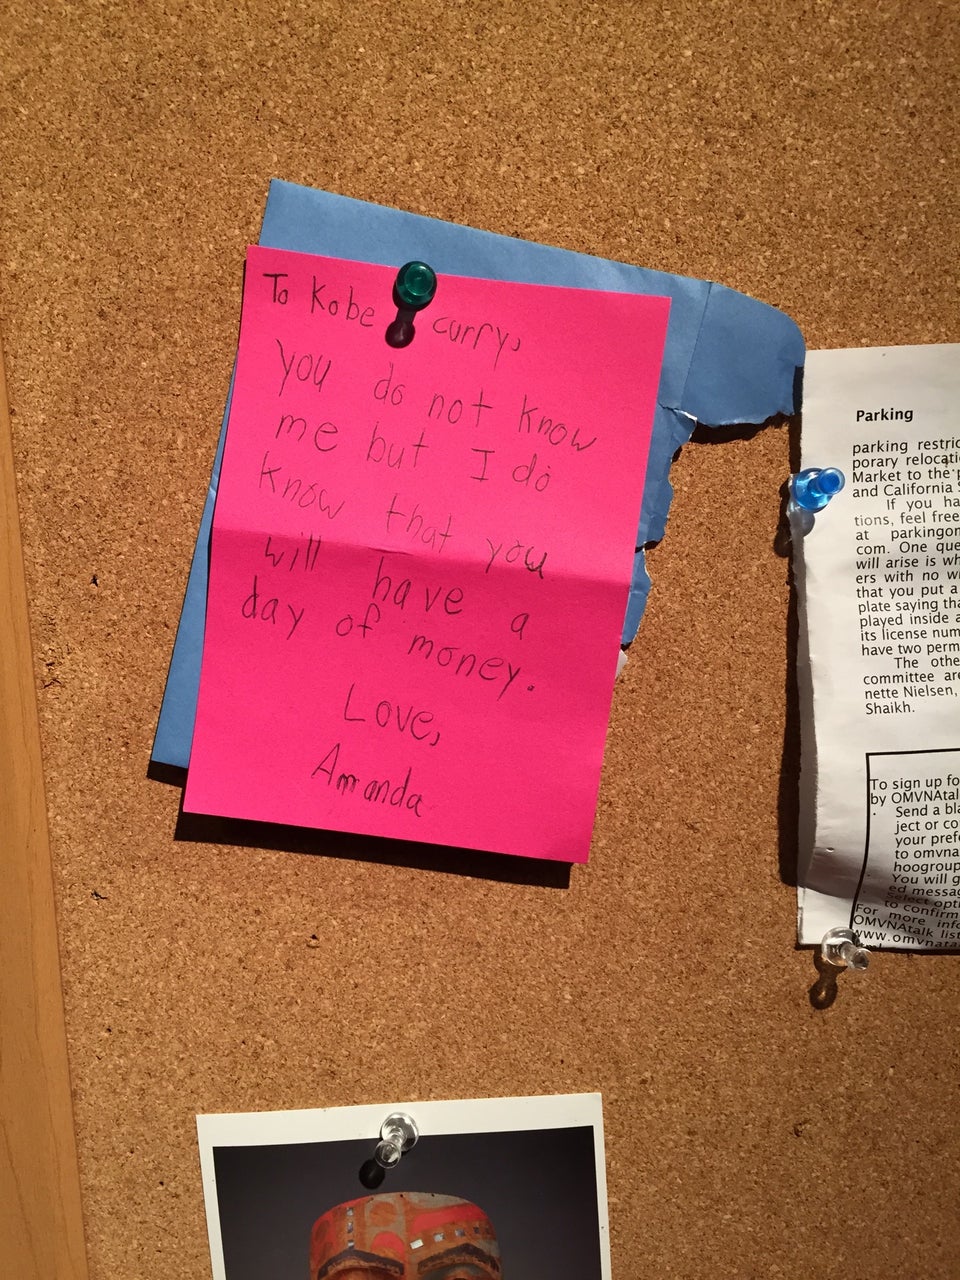 To Kobe curry,
you do not know
me but I do
know that you
will have a
day of money.
Love,
Amanda
Parking
parking restric
porary relocati
Market to the p
and California S
If you ha
tions, feel free
at parkingon
com. One que
will arise is wh
ers with no wi
that you put a
plate saying tha
played inside a
its license num
have two perm
The othe
committee are
nette Nielsen,
Shaikh.
To sign up fo
by OMVNAtal
Send a bla
ject or co
your prefe
to omvna
hoogroup
You will g
ed messag
select opti
to confirm
For more info
OMVNAtalk list
www.omvnata